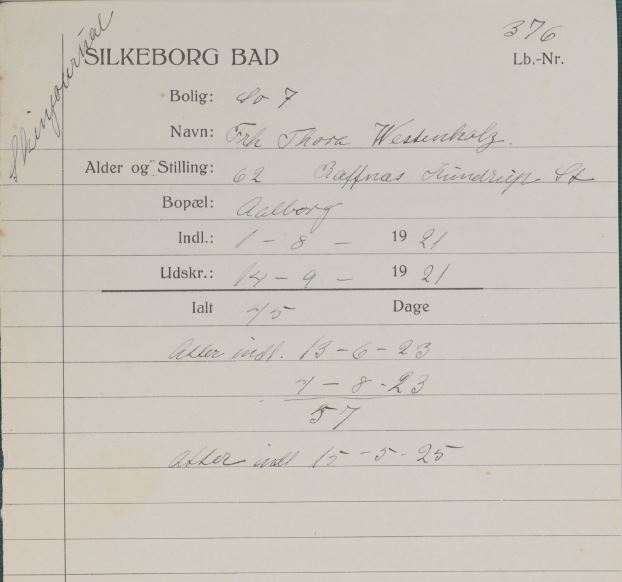 Skinjournal
376
SILKEBORG BAD
Lb.-Nr.
Bolig: So 7
Navn: Frk Thora Westenholz.
Alder og Stilling: 62 Raffnæs Kundrup St
Bopæl: Aalborg
Indl.: 1 - 8 - 1921
Udskr.: 14 - 9 - 1921
Ialt 45 Dage
Atter indl. 13-6-23
4-8-23
57
Atter indl 15-5-25